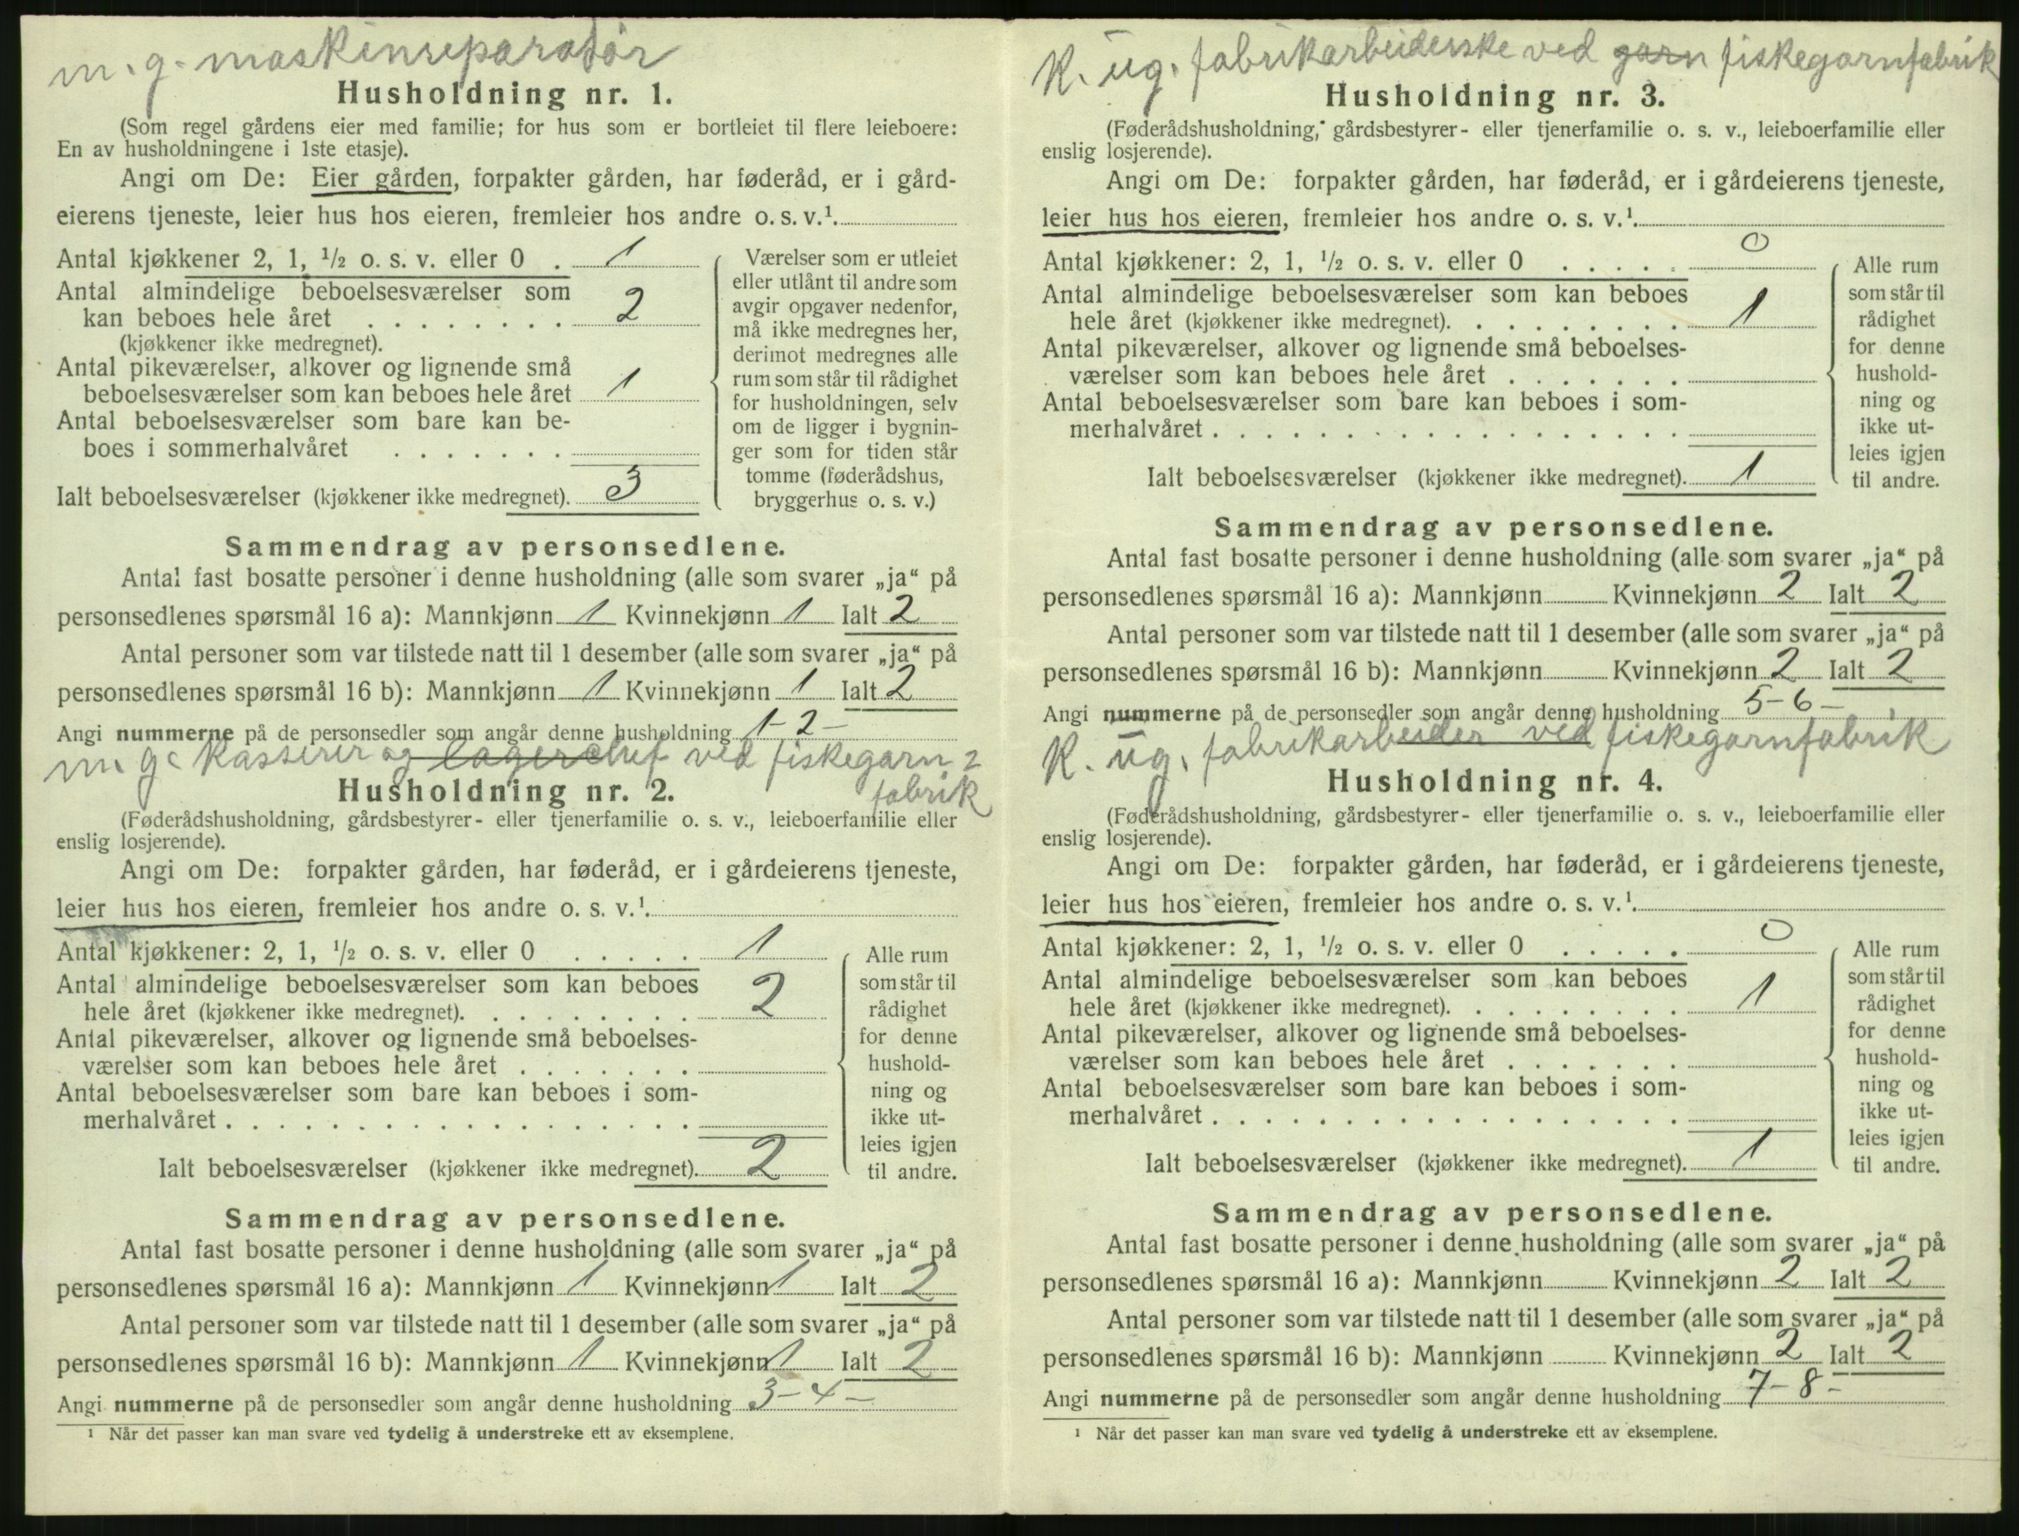 m. g. maskinreparatør
Husholdning nr. 1.
(Som regel gårdens eier med familie; for hus som er bortleiet til flere leieboere:
En av husholdningene i 1ste etasje).
Angi om De: Eier gården, forpakter gården, har føderåd, er i gård-
eierens tjeneste, leier hus hos eieren, fremleier hos andre o. s. v.¹
Antal kjøkkener 2, 1, ½ o. s. v. eller 0 . 1
Antal almindelige beboelsesværelser som
kan beboes hele året . . . . . . . . 2
(kjøkkener ikke medregnet).
Antal pikeværelser, alkover og lignende små
beboelsesværelser som kan beboes hele året 1
Antal beboelsesværelser som bare kan be-
boes i sommerhalvåret . . . . . . .
Ialt beboelsesværelser (kjøkkener ikke medregnet). 3
Værelser som er utleiet
eller utlånt til andre som
avgir opgaver nedenfor,
må ikke medregnes her,
derimot medregnes alle
rum som står til rådighet
for husholdningen, selv
om de ligger i bygnin-
ger som for tiden står
tomme (føderådshus,
bryggerhus o. s. v.)
Sammendrag av personsedlene.
Antal fast bosatte personer i denne husholdning (alle som svarer „ja“ på
personsedlenes spørsmål 16 a): Mannkjønn 1 Kvinnekjønn 1 Ialt 2
Antal personer som var tilstede natt til 1 desember (alle som svarer „ja“ på
personsedlenes spørsmål 16 b): Mannkjønn 1 Kvinnekjønn 1 Ialt 2
Angi nummerne på de personsedler som angår denne husholdning 1-2-
m. g. Kasserer og lagerchef ved fiskegarn=
fabrik
Husholdning nr. 2.
(Føderådshusholdning, gårdsbestyrer- eller tjenerfamilie o. s. v., leieboerfamilie eller
enslig losjerende).
Angi om De: forpakter gården, har føderåd, er i gårdeierens tjeneste,
leier hus hos eieren, fremleier hos andre o. s. v.¹
Antal kjøkkener: 2, 1, ½ o. s. v. eller 0 . . . . . 1
Antal almindelige beboelsesværelser som kan beboes
hele året (kjøkkener ikke medregnet). . . . . . . . . 2
Antal pikeværelser, alkover og lignende små beboelses-
værelser som kan beboes hele året . . . . . . .
Antal beboelsesværelser som bare kan beboes i som-
merhalvåret . . . . . . . . . . . . . . . . . .
Ialt beboelsesværelser (kjøkkener ikke medregnet). 2
Alle rum
som står til
rådighet
for denne
hushold-
ning og
ikke ut-
leies igjen
til andre.
Sammendrag av personsedlene.
Antal fast bosatte personer i denne husholdning (alle som svarer „ja“ på
personsedlenes spørsmål 16 a): Mannkjønn 1 Kvinnekjønn 1 Ialt 2
Antal personer som var tilstede natt til 1 desember (alle som svarer „ja“ på
personsedlenes spørsmål 16 b): Mannkjønn 1 Kvinnekjønn 1 Ialt 2
Angi nummerne på de personsedler som angår denne husholdning 3-4-
¹ Når det passer kan man svare ved tydelig å understreke ett av eksemplene.
K. ug. fabrikarbeiderske ved garn fiskegarnfabrik
Husholdning nr. 3.
(Føderådshusholdning, gårdsbestyrer- eller tjenerfamilie o. s. v., leieboerfamilie eller
enslig losjerende).
Angi om De: forpakter gården, har føderåd, er i gårdeierens tjeneste,
leier hus hos eieren, fremleier hos andre o. s. v.¹
Antal kjøkkener: 2, 1, ½ o. s. v. eller 0 . . . . . 0
Antal almindelige beboelsesværelser som kan beboes
hele året (kjøkkener ikke medregnet). . . . . . . . . 1
Antal pikeværelser, alkover og lignende små beboelses-
værelser som kan beboes hele året . . . . . . .
Antal beboelsesværelser som bare kan beboes i som-
merhalvåret . . . . . . . . . . . . . . . . . .
Ialt beboelsesværelser (kjøkkener ikke medregnet). 1
Alle rum
som står til
rådighet
for denne
hushold-
ning og
ikke ut-
leies igjen
til andre.
Sammendrag av personsedlene.
Antal fast bosatte personer i denne husholdning (alle som svarer „ja“ på
personsedlenes spørsmål 16 a): Mannkjønn Kvinnekjønn 2 Ialt 2
Antal personer som var tilstede natt til 1 desember (alle som svarer „ja“ på
personsedlenes spørsmål 16 b): Mannkjønn Kvinnekjønn 2 Ialt 2
Angi nummerne på de personsedler som angår denne husholdning 5-6-
K. ug. fabrikarbeider ved fiskegarnfabrik
Husholdning nr. 4.
(Føderådshusholdning, gårdsbestyrer- eller tjenerfamilie o. s. v., leieboerfamilie eller
enslig losjerende).
Angi om De: forpakter gården, har føderåd, er i gårdeierens tjeneste,
leier hus hos eieren, fremleier hos andre o. s. v.¹
Antal kjøkkener: 2, 1, ½ o. s. v. eller 0 . . . . . 0
Antal almindelige beboelsesværelser som kan beboes
hele året (kjøkkener ikke medregnet). . . . . . . . . 1
Antal pikeværelser, alkover og lignende små beboelses-
værelser som kan beboes hele året . . . . . . .
Antal beboelsesværelser som bare kan beboes i som-
merhalvåret . . . . . . . . . . . . . . . . . .
Ialt beboelsesværelser (kjøkkener ikke medregnet). 1
Alle rum
som står til
rådighet
for denne
hushold-
ning og
ikke ut-
leies igjen
til andre.
Sammendrag av personsedlene.
Antal fast bosatte personer i denne husholdning (alle som svarer „ja“ på
personsedlenes spørsmål 16 a): Mannkjønn Kvinnekjønn 2 Ialt 2
Antal personer som var tilstede natt til 1 desember (alle som svarer „ja“ på
personsedlenes spørsmål 16 b): Mannkjønn Kvinnekjønn 2 Ialt 2
Angi nummerne på de personsedler som angår denne husholdning 7-8-
¹ Når det passer kan man svare ved tydelig å understreke ett av eksemplene.